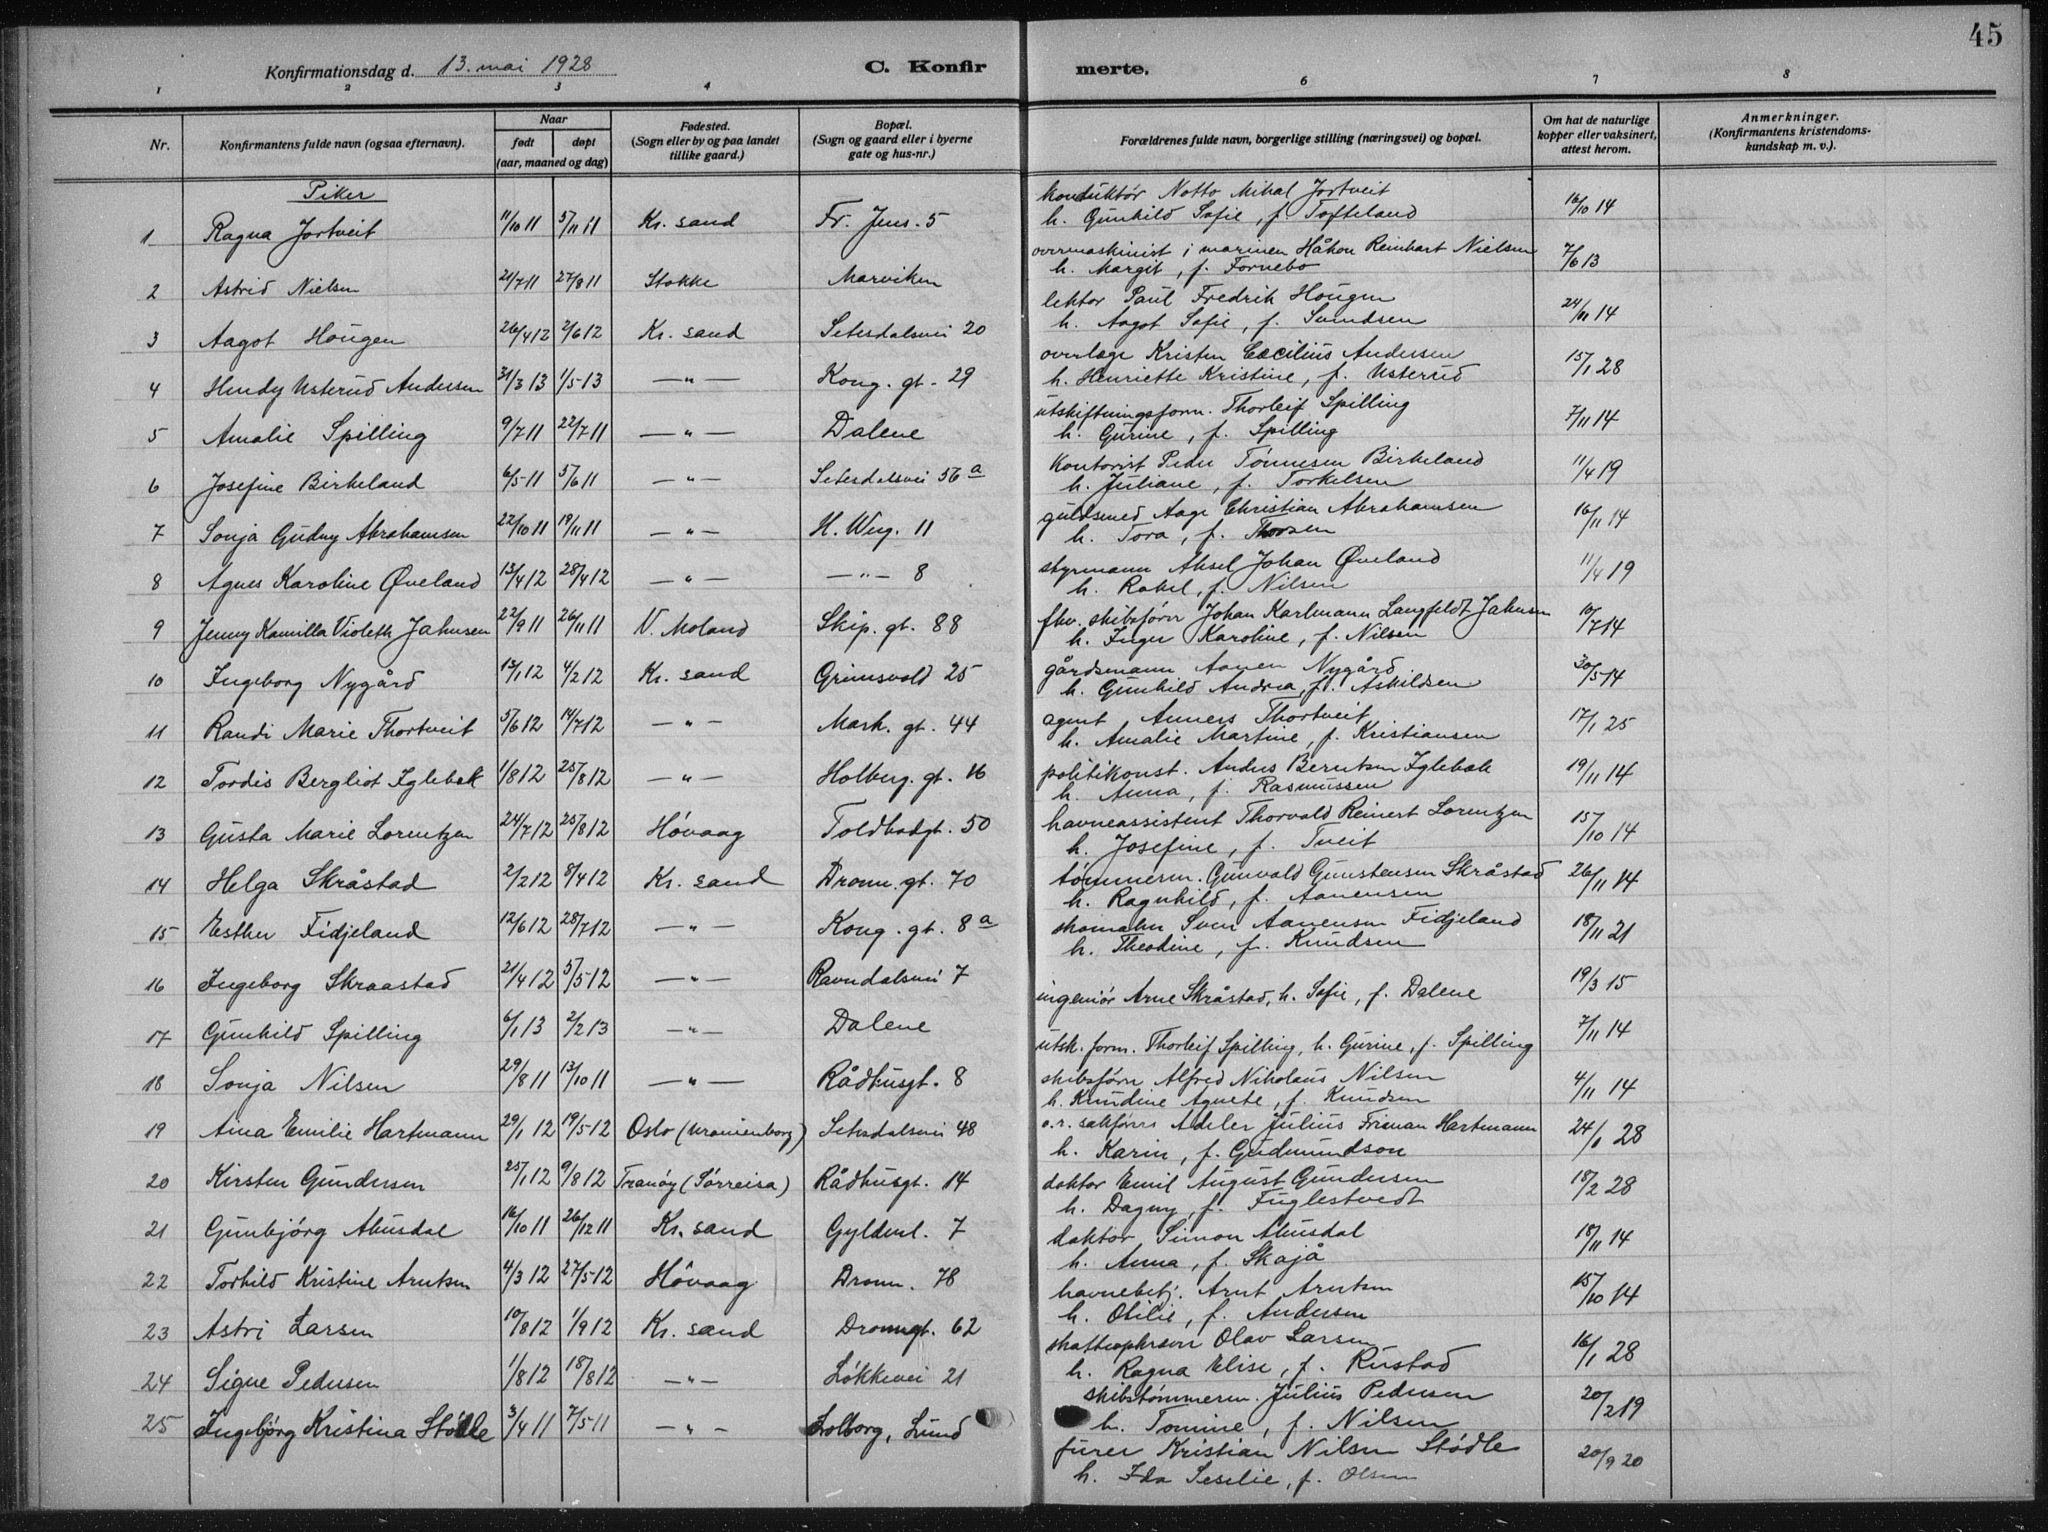 45
Konfirmationsdag d. 13. mai 1928
C. Konfirmerte.
1 2 3 4 6 7 8
Nr.
Konfirmantens fulde navn (ogsaa efternavn).
Naar
født døpt
(aar, maaned og dag)
Fødested.
(Sogn eller by og paa landet
tillike gaard.)
Bopæl.
(Sogn og gaard eller i byerne
gate og hus-nr.)
Forældrenes fulde navn, borgerlige stilling (næringsvei) og bopæl.
Om hat de naturlige
kopper eller vaksinert,
attest herom.
Anmerkninger.
(Konfirmantens kristendoms-
kundskap m. v.).
Piker
1 Ragna Jortveit 11/10 11 5/11 11 Kr. sand Fr. Jens. 5
konduktør Notto Mikal Jortveit
h. Gunhild Sofie, f. Tofteland 16/10 14
2 Astrid Nielsen 21/7 11 27/8 11 Stokke Marviken
overmaskinist i marinen Håkon Reinhart Nielsen
h. Margit, f. Fornebo 7/6 13
3 Aagot Hougen 26/4 12 2/6 12 Kr. sand Setesdalsvei 20
lektor Paul Fredrik Hougen
h. Aagot Sofie, f. Svendsen 24/11 14
4 Hendy Usterud Andersen 31/3 13 1/5 13 — " — Kong. gt. 29
overlæge Kristen Cæcilius Andersen
h. Henriette Kristine, f. Usterud 15/1 28
5 Amalie Spilling 9/7 11 22/7 11 — " — Dalene
utskiftningsform. Thorleif Spilling
h. Gurine, f. Spilling 7/11 14
6 Josefine Birkeland 6/5 11 5/6 11 — " — Setesdalsvei 56a
kontorist Peder Tønnesen Birkeland
h. Juliane, f. Torkelsen 11/4 19
7 Sonja Gudny Abrahamsen 22/10 11 19/11 11 — " — H. Werg. 11
guldsmed Aage Christian Abrahamsen
h. Tora, f. Thorsen 16/11 14
8 Agnes Karoline Øveland 13/4 12 28/4 12 — " — — " — 8
styrmann Aksel Johan Øveland
h. Rakel, f. Nilsen 11/4 19
9 Jenny Kamilla Violeth Jahnsen 22/9 11 26/11 11 V. Moland Skip. gt. 88
fhv. skibsfører Johan Karlmann Langfeldt Jahnsen
h. Inger Karoline, f. Nilsen 10/7 14
10 Ingeborg Nygård 15/1 12 4/2 12 Kr. sand Grimsvold 25
gårdsmann Aanen Nygård
h. Gunhild Andrea, f. Askildsen 30/5 14
11 Randi Marie Thortveit 5/6 12 14/7 12 — " — Mark. gt. 44
agent Anners Thortveit
h. Amalie Martine, f. Kristiansen 17/1 25
12 Tordis Bergliot Iglebæk 1/8 12 25/8 12 — " — Holberg. gt. 16
politikonst. Anders Berntsen Iglebæk
h. Anna, f. Rasmussen 19/11 14
13 Gusta Marie Lorentzen 24/7 12 25/8 12 Høvaag Toldbodgt. 50
havneassistent Thorvald Reinert Lorentzen
h. Josefine, f. Tveit 15/10 14
14 Helga Skråstad 2/2 12 8/4 12 Kr. sand Dronn. gt. 70
tømmerm. Gunvald Gunstensen Skråstad
h. Ragnhild, f. Aanensen 26/11 14
15 Esther Fidjeland 12/6 12 28/7 12 — " — Kong. gt. 8a
skomaker Sven Aanensen Fidjeland
h. Theodine, f. Knudsen 18/11 21
16 Ingeborg Skraastad 21/4 12 5/5 12 — " — Ravndalsvei 7
ingeniør Arne Skråstad, h. Sofie, f. Dalene 19/3 15
17 Gunhild Spilling 6/1 13 2/2 13 — " — Dalene
utsk. form. Thorleif Spilling, h. Gurine, f. Spilling 7/11 14
18 Sonja Nilsen 29/8 11 13/10 11 — " — Rådhusgt. 8
skibsfører Alfred Nikolaus Nilsen
h. Knudine Agnete, f. Knudsen 4/11 14
19 Aina Emilie Hartmann 29/1 12 19/5 12 Oslo (Uranienborg) Setesdalsvei 48
o.r. sakfører Adeler Julius Friman Hartmann
h. Karin, f. Gudmundson 24/1 28
20 Kirsten Gundersen 25/1 12 9/8 12 Tranøy (Sørreisa) Rådhusgt. 14
doktor Emil August Gundersen
h. Dagny, f. Fuglestvedt 18/2 28
21 Gunbjørg Ahusdal 16/10 11 26/12 11 Kr. sand Gyldenl. 7
doktor Simon Ahusdal
h. Anna, f. Skajå 18/11 14
22 Torhild Kristine Arntsen 4/3 12 27/5 12 Høvaag Dronn. 78
havnebetj. Arnt Arntsen
h. Otilie, f. Andersen 15/10 14
23 Astri Larsen 10/8 12 1/9 12 Kr. sand Dronngt. 62
skatteopkræver Olav Larsen
h. Ragna Elise, f. Rustad 16/1 28
24 Signe Pedersen 1/8 12 18/8 12 — " — Løkkevei 21
skibstømmerm. Julius Pedersen
h. Tomine, f. Nilsen 20/2 19
25 Ingebjørg Kristina Stødle 3/4 11 7/5 11 — " — Solborg, Lund
furer Kristian Nilsen Stødle
h. Ida Sesilie, f. Olsen 20/9 20